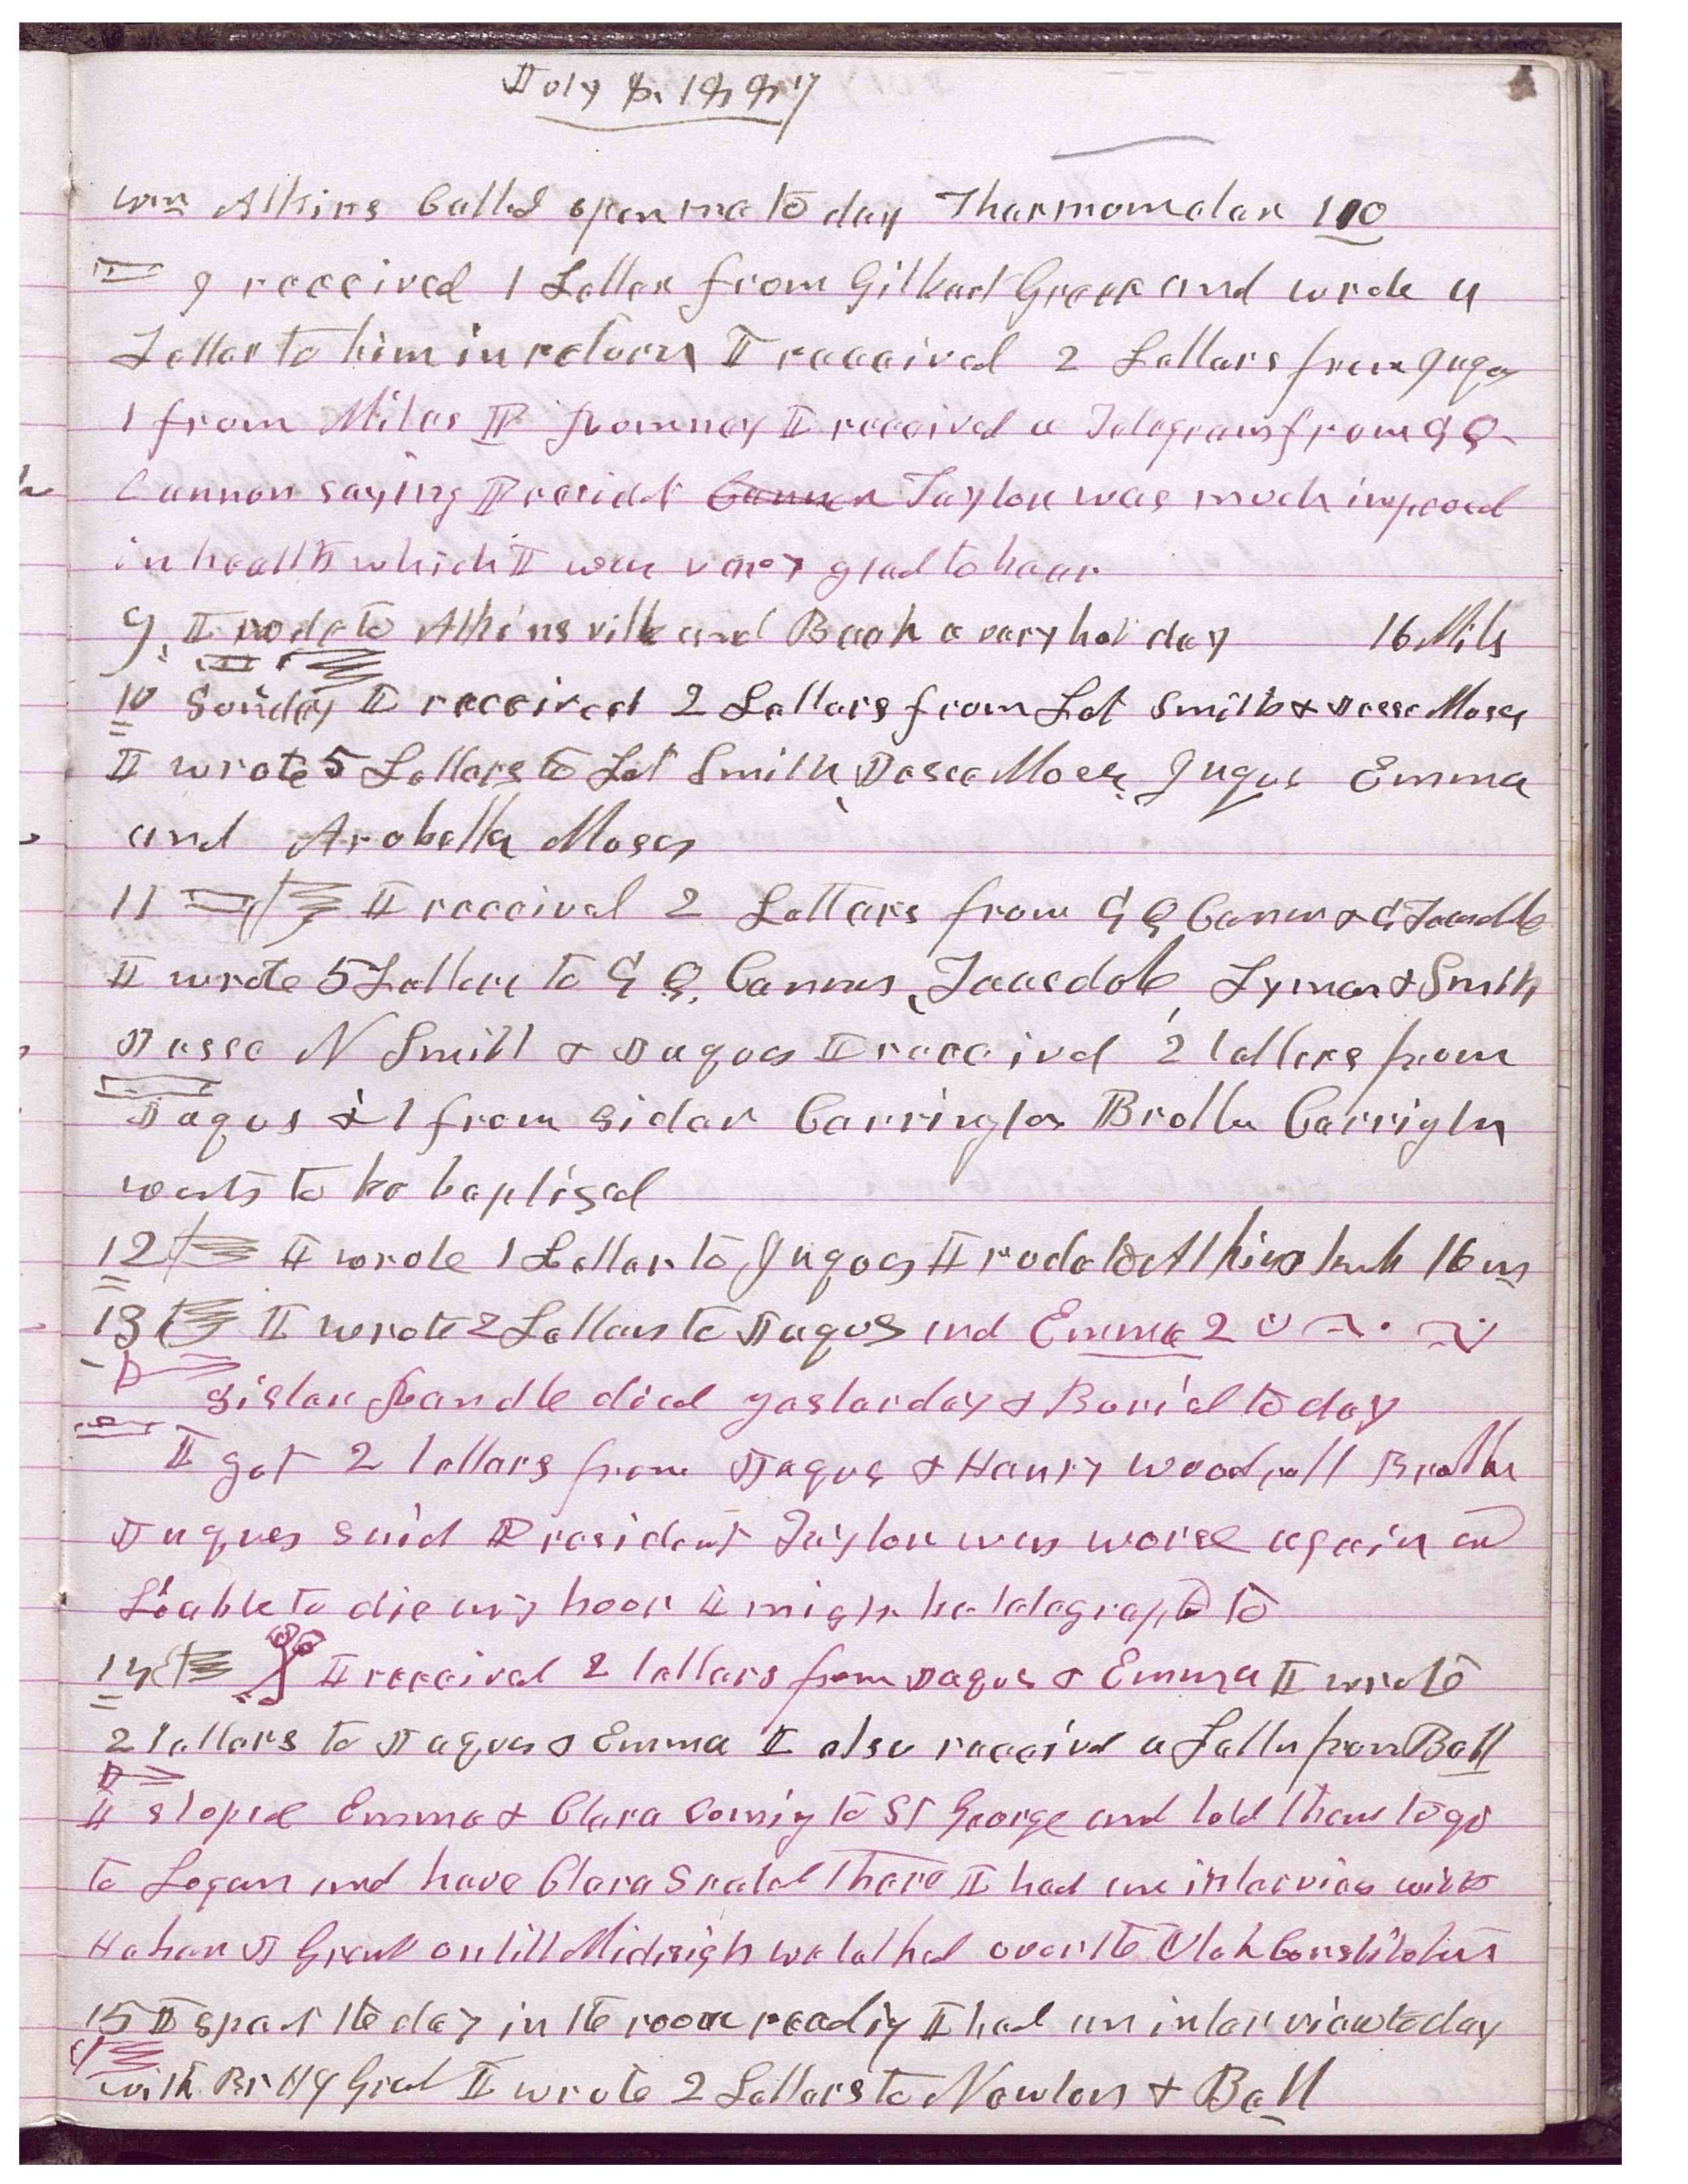 July 8. 1887
Wm Atkins Called upon me to day Tharmomatar 110
I received 1 Letter from Gilbert Greer and wrote a
Letter to him in return I received 2 Letters from Jaques
1 from Miles P Romney I received a Telegram from G Q
Cannon saying Presidet Cannon Taylor was much improved
in health which I was very glad to hear
9. I rode to Atkinsville and Back a very hot day 16 Mils
10 Sunday I received 2 Letters from Lot Smith & Jesse Moses
I wrote 5 Letters to Lot Smith, Jesse Moses, Jaques Emma
and Arabella Moses
11 I received 2 Letters from G Q Cannon & G Teasdle
I wrote 5 Letters to G Q. Cannon, Teasdale, Lyman & Smith
Jesse N Smith & Jaques I received 2 letters from
Jaques & 1 from Sister Carrington Brother Carrigtn
wants to be baptised
12 I wrote 1 Letter to Jaques I rode to Atkins 16 m
13 I wrote 2 Letters to Jaques and Emma 2
Sister Randle died yesterday & Buried to day
I got 2 letters from Jaques & Henry Woodruff Brother
Jaques said President Taylor was worse again and
Liable to die any hour I might be telegraphed to
14 I received 2 letters from Jaques & Emma I wrote
2 letters to Jaques & Emma I also received a Letter from Ball
I stoped Emma & Clara comig to St George and told them to go
to Logan and have Clara Sealed There I had an interview with
Heber J Grant untill Midnigh we talked over the Utah Constitution
15 I spent the day in the room readig I had an interview to day
with Br H J Grant I wrote 2 Letters to Newton & Ball